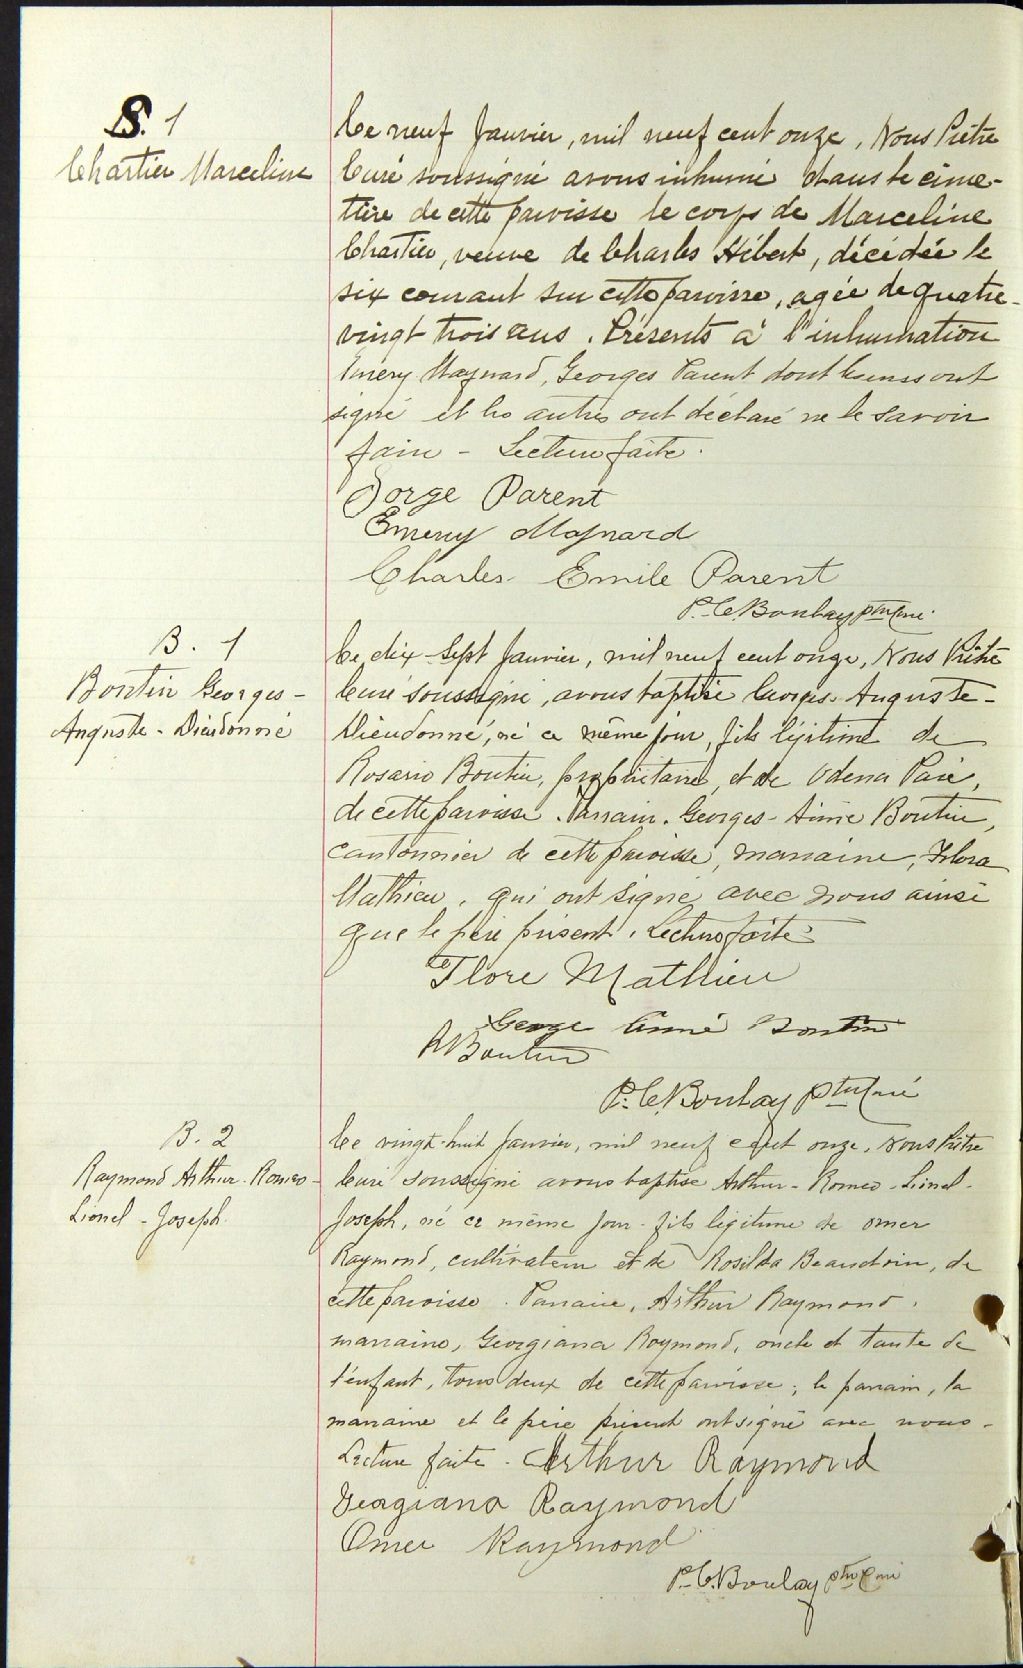 S. 1
Chartier Marceline
Ce neuf Janvier, mil neuf cent onze, Nous Prêtre
Curé soussigné avons inhumé dans le cime-
tière de cette paroisse le corps de Marceline
Chartier, veuve de Charles Hébert, décédée le
six courant sur cette paroisse, agée de quatre-
vingt trois ans. Présents à l'inhumation
Emery Maynard, Georges Parent dont ont
signé et les autres ont déclaré ne le savoir
faire - Lecture faite.
Jorge Parent
Emery Maynard
Charles Emile Parent
P. C. Boulay ptre curé
B. 1
Boutin Georges-
Auguste - Dieudonné
Ce dix-Sept Janvier, mil neuf cent onze, Nous Prêtre
Curé soussigné, avons baptisé Georges Auguste-
Dieudonné, né ce même jour, fils légitime de
Rosario Boutin, propriétaire, et de Odena Paré,
de cette paroisse. Parrain. Georges-Aimé Boutin,
cantonnier de cette paroisse, marraine, Flora
Mathieu, qui ont signé avec nous ainsi
que le père présent. Lecture faite.
Flore Mathieu
George Aimé Boutin
R Boutin
P. C. Boulay ptre curé
B. 2
Raymond Arthur-Romeo-
Lionel - Joseph.
Ce vingt-huit Janvier, mil neuf cent onze, Nous Prêtre
Curé soussigné avons baptisé Arthur-Romeo-Lionel-
Joseph, né ce même jour fils légitime de Omer
Raymond, cultivateur et de Rosilda Beaudoin, de
cette paroisse. Parrain, Arthur Raymond,
marraine, Georgiana Raymond, oncle et tante de
l'enfant, tous deux de cette paroisse; le parrain, la
marraine et le père présent ont signé avec nous.
Lecture faite. Arthur Raymond
Georgiana Raymond
Omer Raymond
P. C. Boulay ptre curé